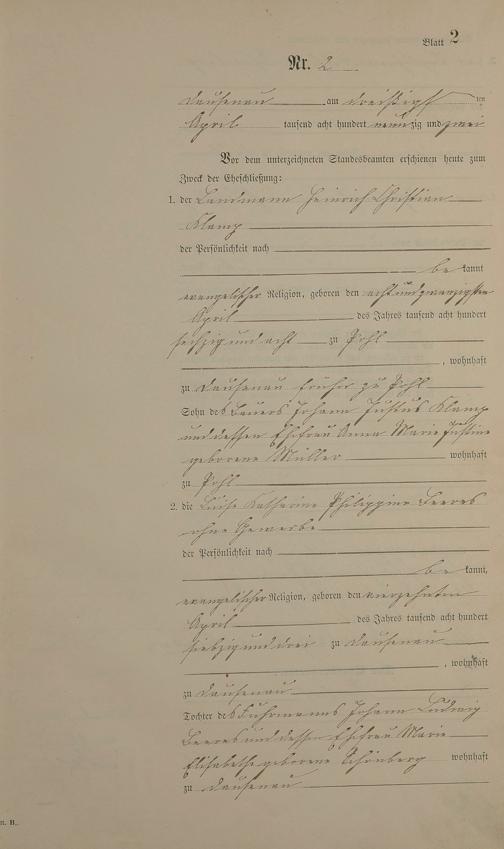 Blatt 2
Nr. 2
Dausenau am dreißigsten
April tausend acht hundert neunzig und zwei
Vor dem unterzeichneten Standesbeamten erschienen heute zum
Zweck der Eheschließung:
1. der Landmann Heinrich Christian
Klamp
der Persönlichkeit nach
be kannt
evangelischer Religion, geboren den acht und zwanzigsten
April des Jahres tausend acht hundert
sechzig und acht zu Pohl
, wohnhaft
zu Dausenau früher zu Pohl
Sohn des Bauers Johann Justus Klamp
und dessen Ehefrau Anna Marie Justine
geborene Müller wohnhaft
zu Pohl
2. die Luise Katharine Philippine
ohne Gewerbe
der Persönlichkeit nach
be kannt,
evangelischer Religion, geboren den vierzehnten
April des Jahres tausend acht hundert
siebzig und drei zu Dausenau
, wohnhaft
zu Dausenau
Tochter des Fuhrmanns Johann Ludwig
und dessen Ehefrau Marie
Elisabethe geborene Schönberg wohnhaft
zu Dausenau
n. B.